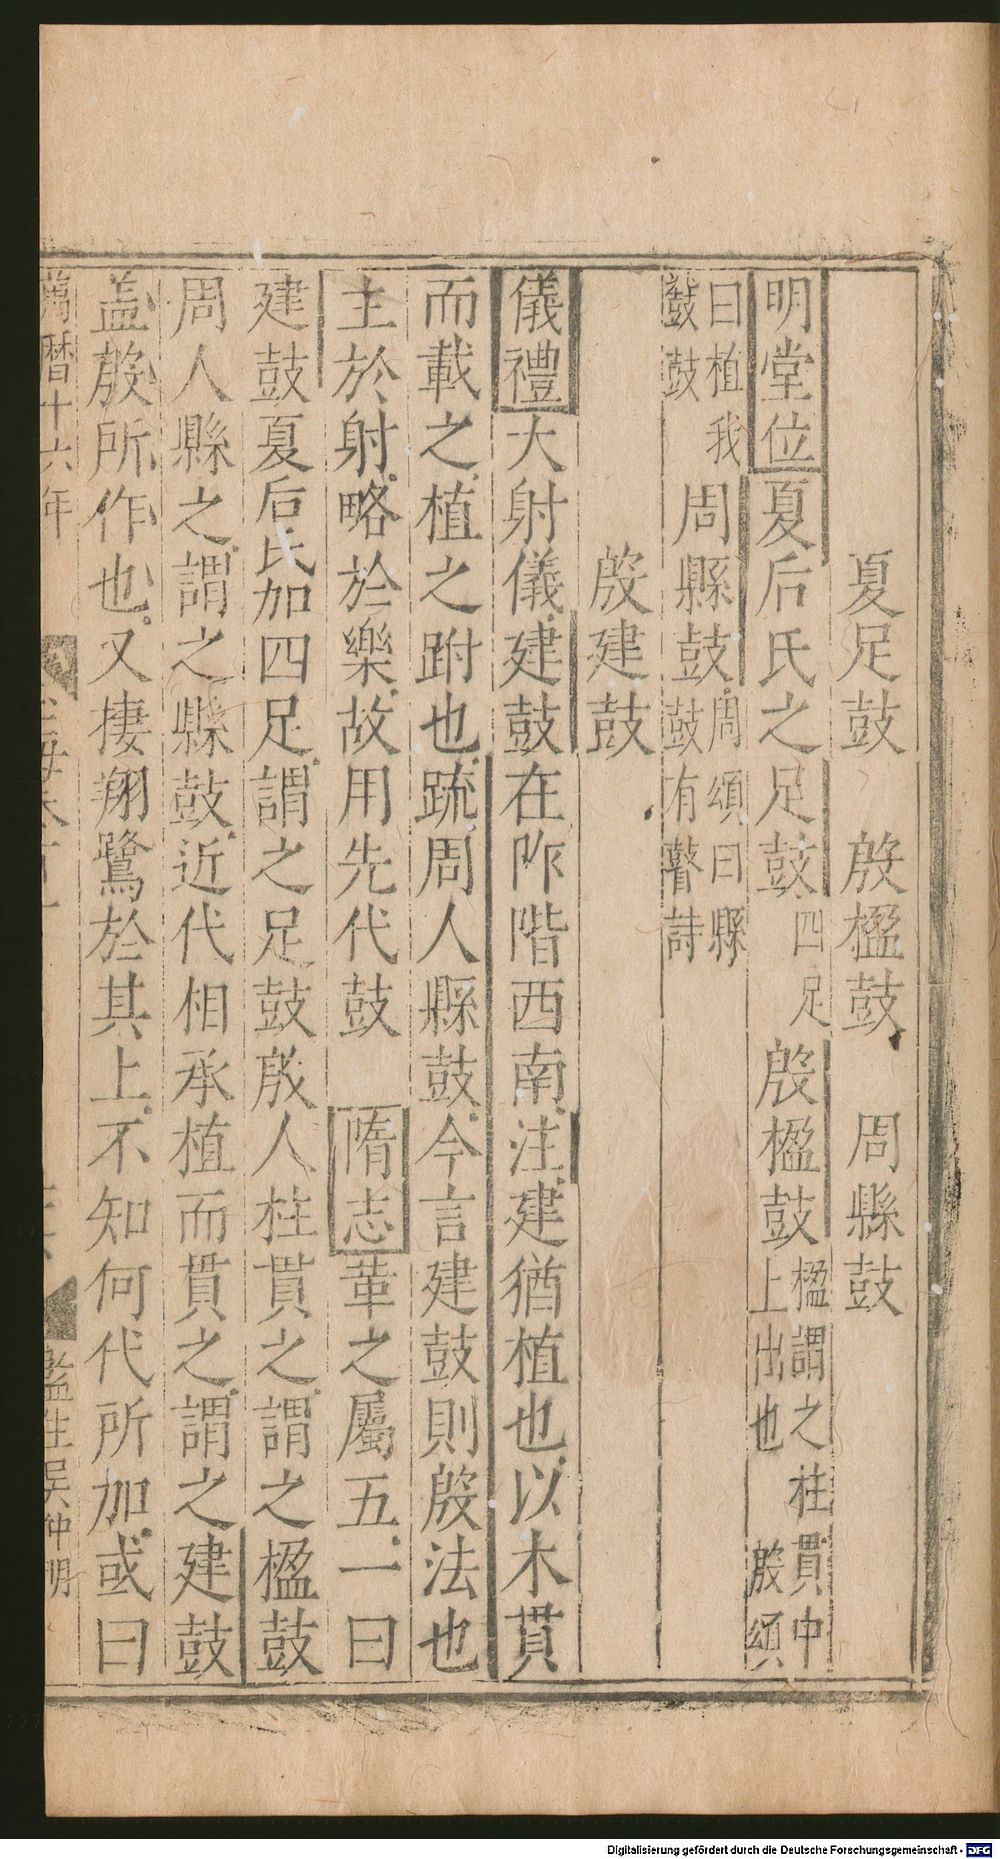 夏足鼓　殷楹鼓　周縣鼓
明堂位夏后氏之足鼓四足殷楹鼓楹謂之柱貫中上出也殷頌
曰植我鼗鼓周縣鼓周頌曰縣鼓有瞽詩
殷建鼓
儀禮大射儀建鼓在阼階西南注建猶植也以木貫
而載之植之跗也疏周人縣鼓今言建鼓則殷法也
主於射略於樂故用先代鼓　隋志革之屬五一曰
建鼓夏后氏加四足謂之足鼓殷人柱貫之謂之楹鼓
周人縣之謂之縣鼓近代相承植而貫之謂之建鼓
盖殷所作也又棲翔鷺於其上不知何代所加或曰
萬曆十六年
監生吴仲明
Digitalisierung gefördert durch die Deutsche Forschungsgemeinschaft - DFG